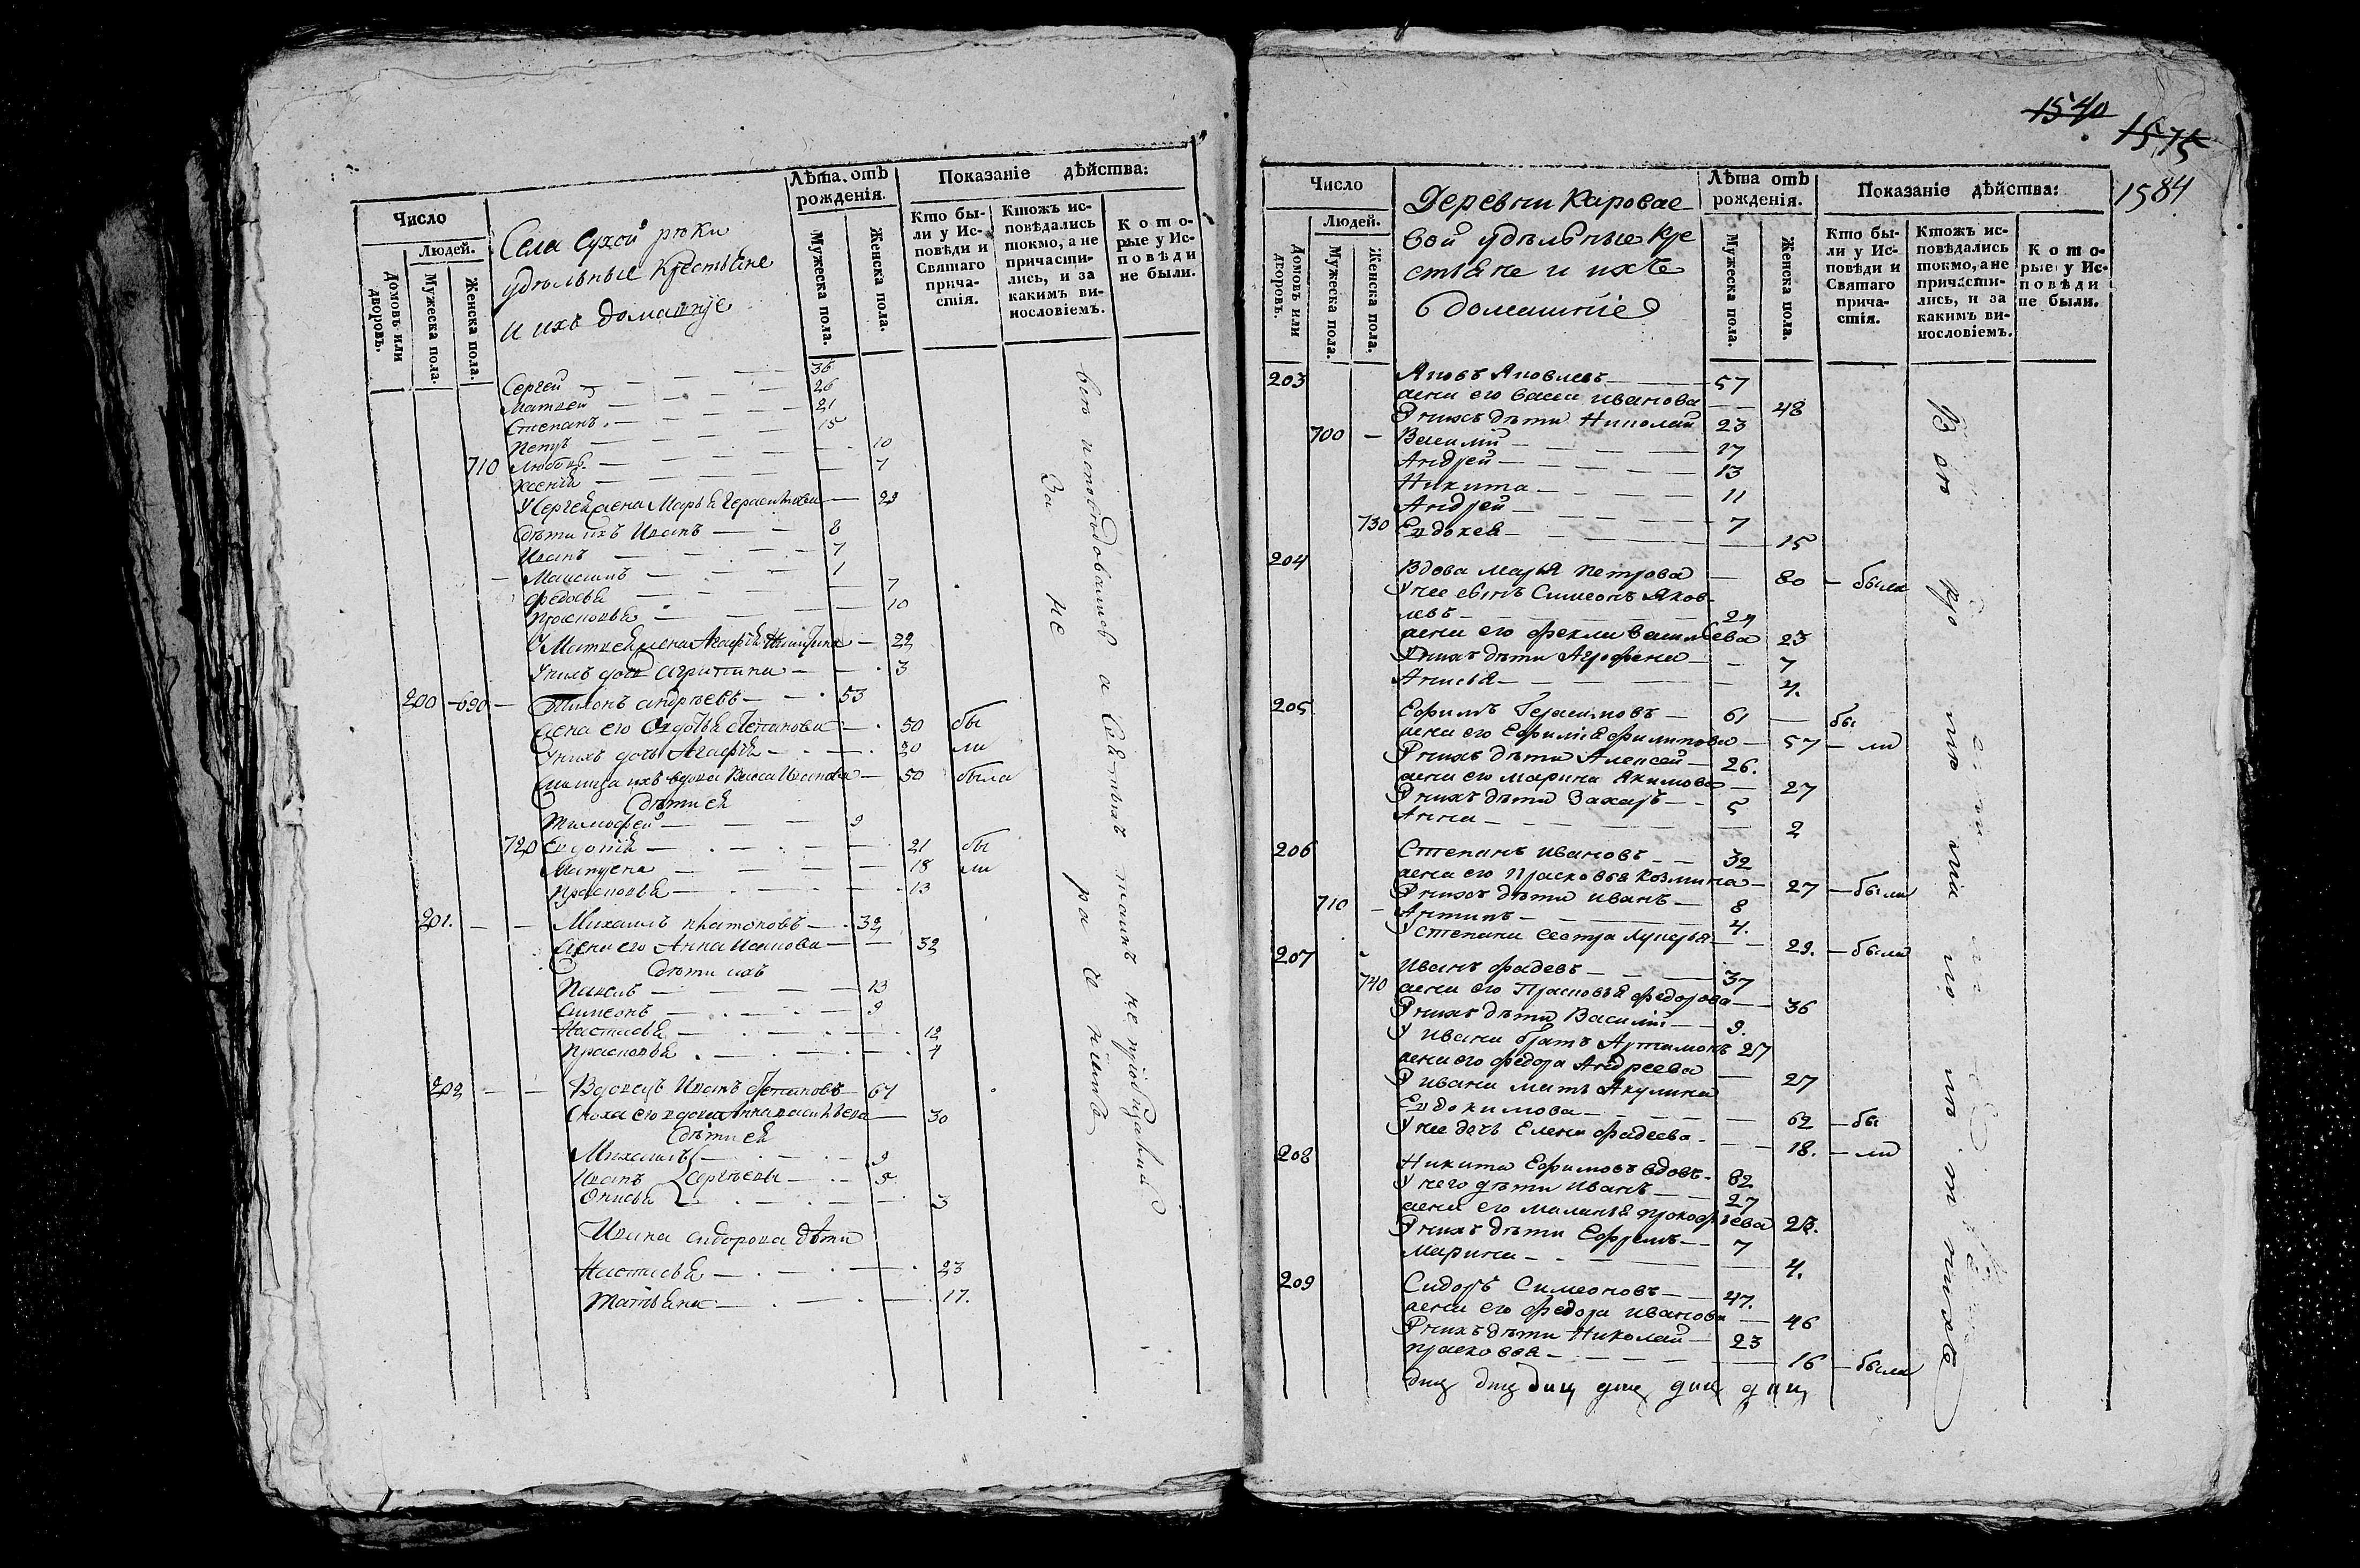 Число
Людей.
Домовъ или дворовъ.
Мужеска пола.
Женска пола.
Села Сухой рѣки
удѣльные крестьяне
и ихъ домашніе
Лѣта отъ рожденія.
Мужеска пола.
Женска пола.
Показаніе дѣйства:
Кто бы-
ли у Ис-
повѣди и
Святаго
прича-
стія.
Ктожъ ис-
повѣдались
токмо, а не
причасти-
лись, и за
какимъ ви-
нословіемъ.
К о т о-
рые у Ис-
п о в ѣ д и
не были.
Сергей 36
Матвей 26
Степанъ 21
Петръ 15
710 Любовь 10
Ксенія 7
У Сергея жена Марья Герасимова 29
Дѣти ихъ Иванъ 8
Иванъ 7
Максимъ 1
Федосья 7
Прасковья 10
У Матвея жена Агафья 22
У нихъ дочь Агрипина 3
200 690 Тихонъ Андреевъ 53
жена его Авдотья Степанова 50 бы
У нихъ дочь Агафья 20 ли
их вдова Васса Иванова 50 была
Дѣти ея
Тимофей 9
720 Евдокія 21 бы
18 ли
Прасковья 13
201. Михаилъ Платоновъ 32
Жена его Анна Иванова 32
Дѣти ихъ
Павелъ 13
Симеонъ 9
Настасья 12
Прасковья 4
202 Вдовецъ Иванъ Степановъ 61
Сноха его вдова Анна Васильева 30
Дѣти ея
Михаилъ 9
Иванъ Сергѣевы 5
Анисья 3
Ивана Сидорова дѣти
Настасья 23
Татьяна 17.
всѣ исповѣдовались а Святыхъ таинъ не пріобщались
За не ра
1540
1575
1584
Число
Людей.
Домовъ или дворовъ.
Мужеска пола.
Женска пола.
Деревни Каровае-
вой удѣльные кре
стьяне и ихъ
домашніе
Лѣта отъ рожденія.
Мужеска пола.
Женска пола.
Показаніе дѣйства:
Кто бы-
ли у Ис-
повѣди и
Святаго
прича-
стія.
Ктожъ ис-
повѣдались
токмо, а не
причасти-
лись, и за
какимъ ви-
нословіемъ.
К о т о-
рые у Ис-
п о в ѣ д и
не были.
203 Яковъ Яковлевъ 57
жена его Васса Иванова 48
У нихъ дѣти Николай 23
700 Василій 17
Андрей 13
Никита 11
Андрей 7
730 Евдокея 15
204 Вдова Марья Петрова 80 была
У нее сынъ Симеонъ Яков-
левъ 24
жена его Фекла Васильева 23
У нихъ дѣти Агрофена 7
Анисья 4.
205 Ефимъ Герасимовъ 61 бы
жена его Ефимія Филипова 57 ли
У нихъ дѣти Алексей 26.
жена его Марина Якимова 27
У нихъ дѣти Захаръ 5
Анна 2
206 Степанъ Ивановъ 32
жена его Прасковья Козмина 27 была
У нихъ дѣти Иванъ 8
710 Антипъ 4.
У Степана сестра Лукерья 29. была
207 Иванъ Фадевъ 37
740 жена его Прасковья Федорова 36
У нихъ дѣти Василій 9.
У Ивана братъ Артамонъ 27
жена его Федора Андреева 27
У Ивана мать Акулина
Евдокимова 62 бы
У нее дочь Елена Фадеева 18. ли
208 Никита Ефимовъ вдовъ 62
У него дѣти Иванъ 27
жена его Маланья Прокофьева 28.
У нихъ дѣти Ефремъ 7
Марина 4.
209 Сидоръ Симеоновъ 47.
жена его Федора Иванова 46
У нихъ дѣти Николай 23
Прасковья 16 была